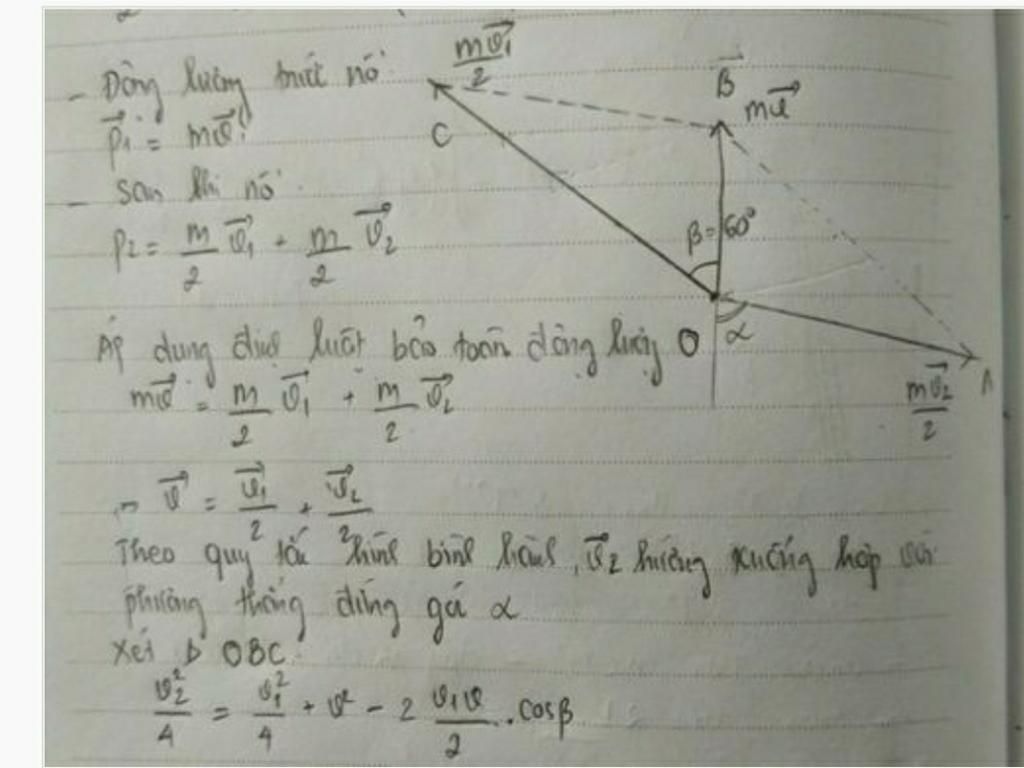 - Động lượng trước nổ:
p⃗₁ = mv⃗
- sau khi nổ:
p₂ = m/2 v⃗₁ + m/2 v⃗₂
Áp dụng định luật bảo toàn động lượng
mv⃗ = m/2 v⃗₁ + m/2 v⃗₂
⇒ v⃗ = v⃗₁/2 + v⃗₂/2
Theo quy tắc hình bình hành, v⃗₂ hướng xuống hợp với
phương thẳng đứng góc α
Xét Δ OBC:
v₂²/4 = v₁²/4 + v² - 2 v₁v/2 . cosβ
mv⃗₁/2
C
B
mv⃗
β = 60°
O
α
A
mv⃗₂/2